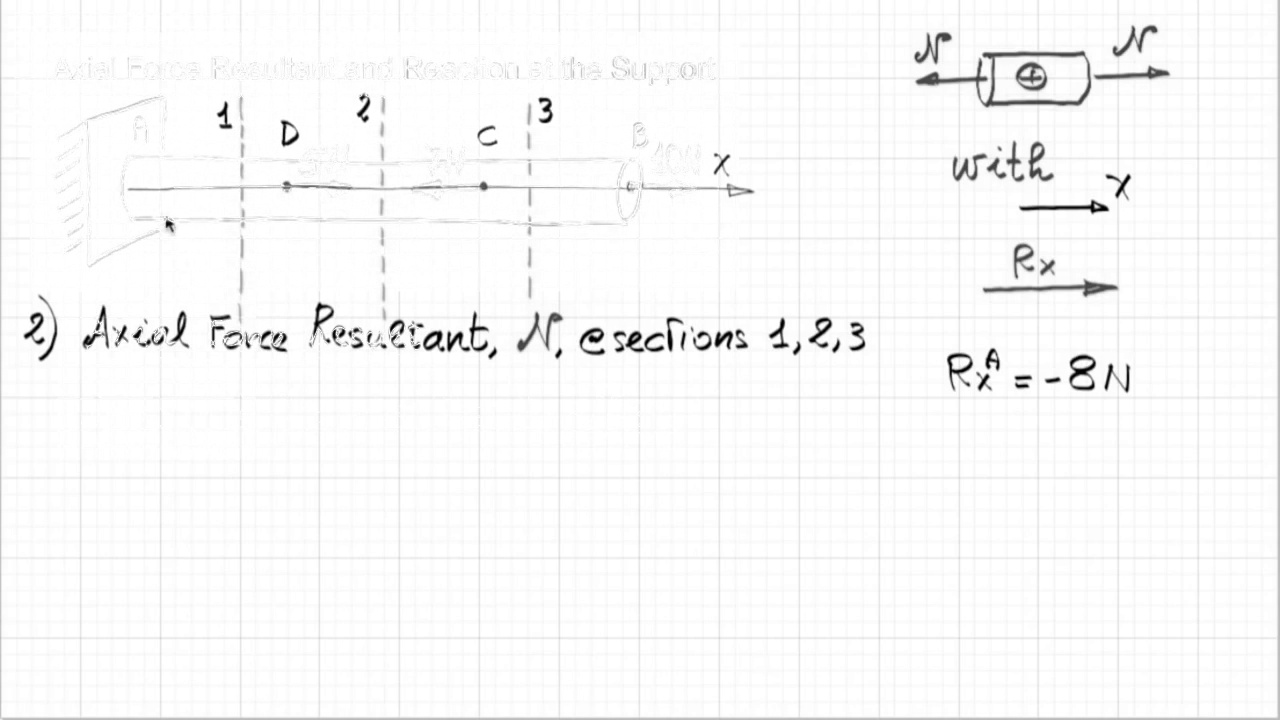 Axial Force Resultant and Reaction at the Support
N N
A 1 D 2 C 3 B
5N 7N 10N X
with
X
Rx
2) Axial Force Resultant, N, @ sections 1, 2, 3
Rx^A = -8N